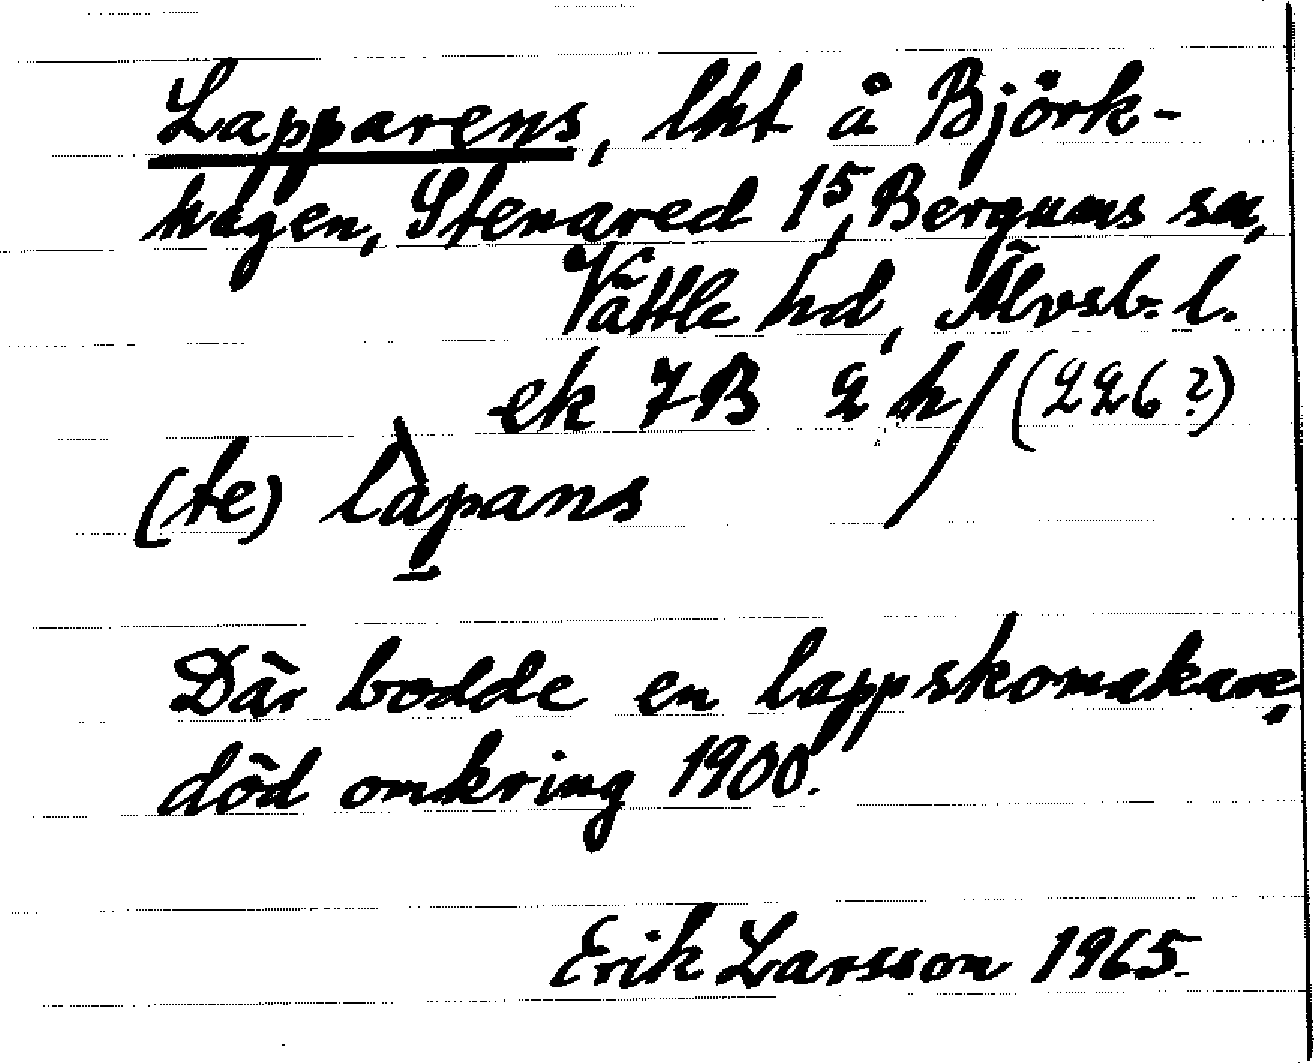 Lapparens, lht å Björk-
hagen, Stenared 1⁵, Bergums sn,
Vättle hd, Älvsb. l.
ek 7B 2 h/(226?)
(te) làpans
Där bodde en lappskomakare,
död omkring 1900.
Erik Larsson 1965.